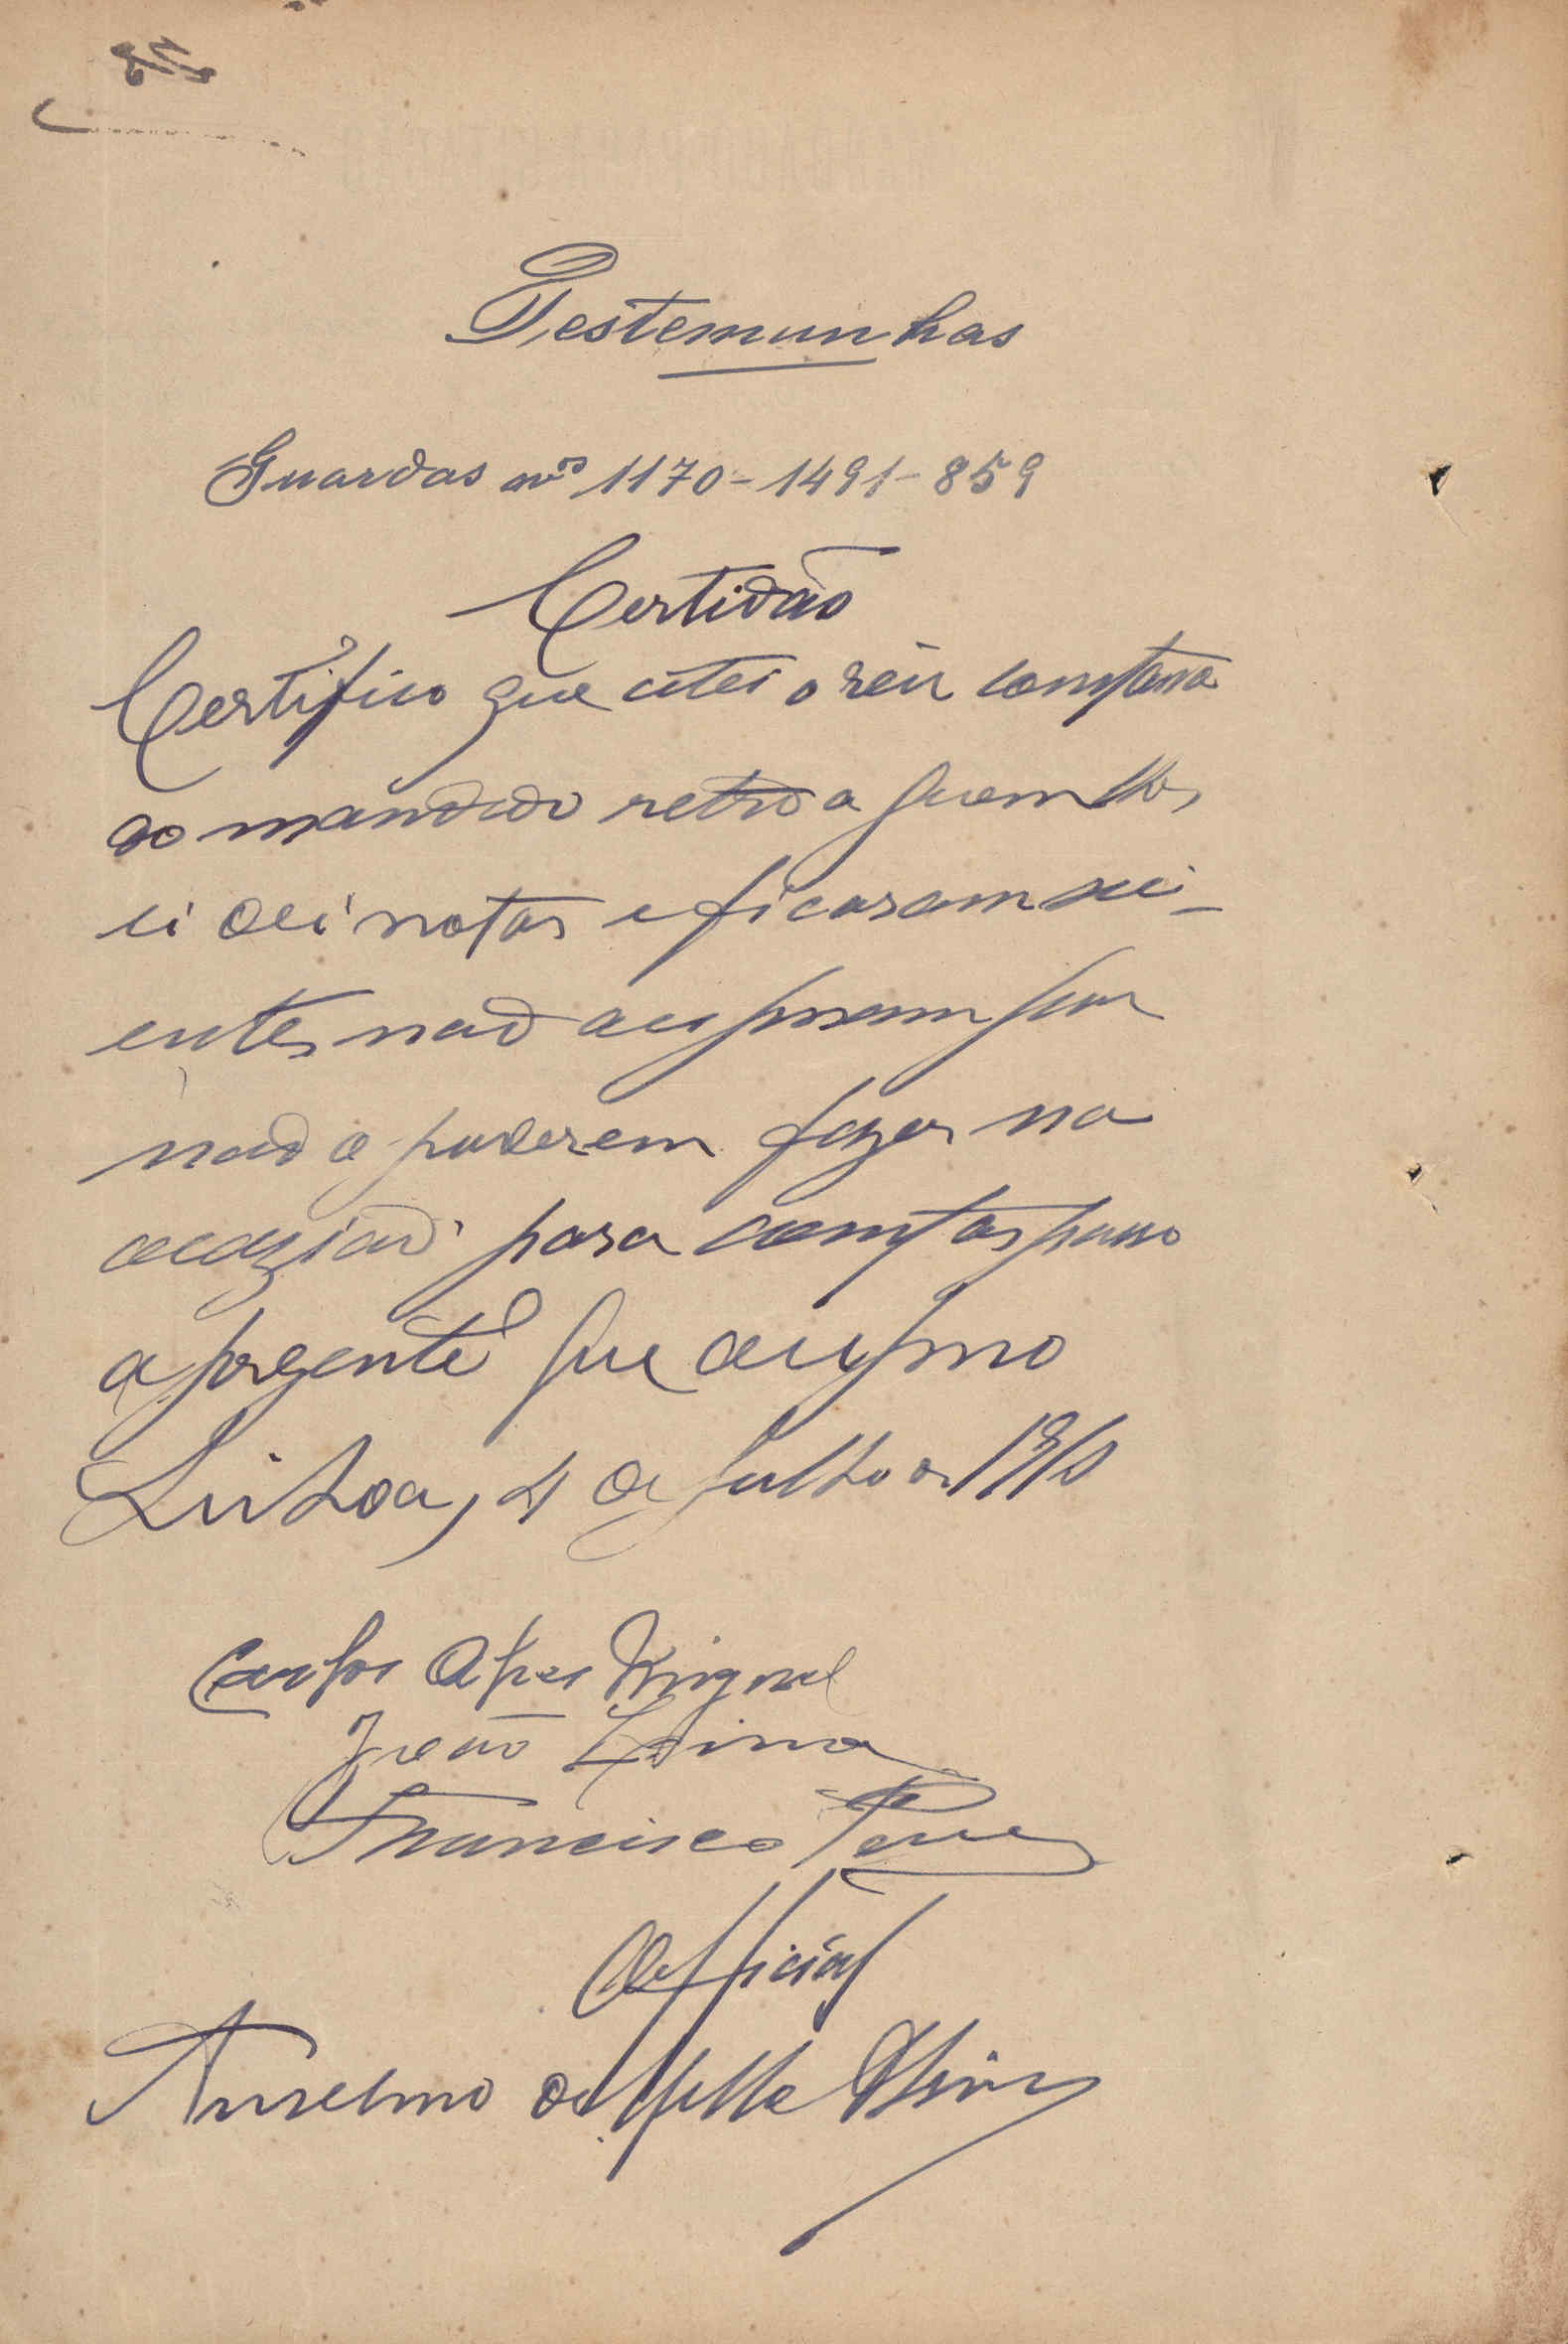 Testemunhas
Guardas nos 1170-1491-859
Certidão
Certifico que citei o réu constante
do mandado retro a quem lhes
li dei notas e ficaram sci-
entes não assignam por
não o poderem fazer na
occazião para constar passo
a prezente que assigno
Lisboa, 4 de Julho de 1910
Carlos Alves Miguel
João Lima
Francisco
O official
Anselmo de Mello